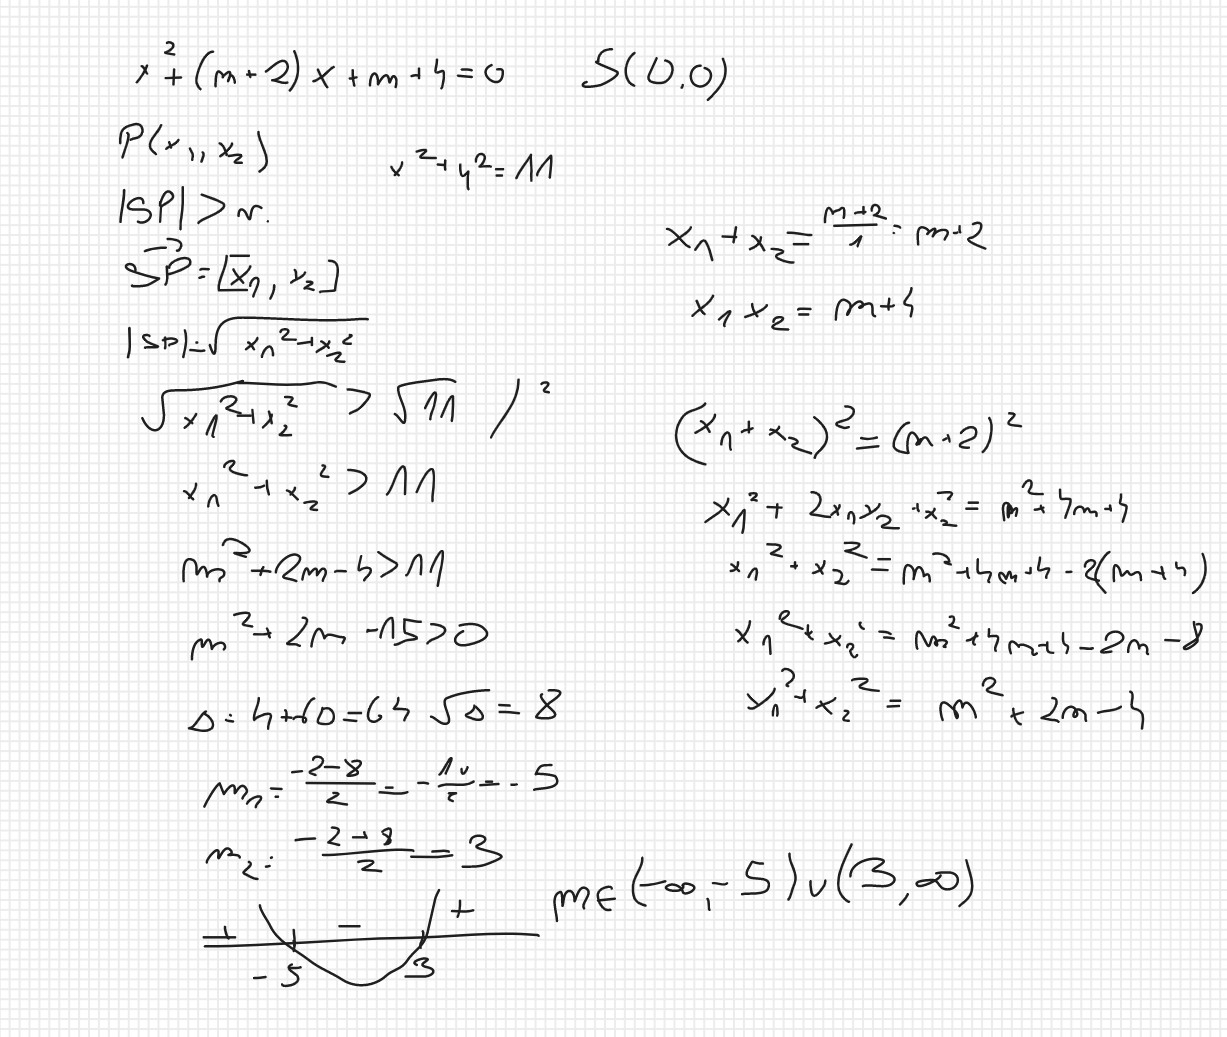 x² + (m+2)x + m + 4 = 0   S(0,0)
P(x₁, x₂)
x² + y² = 11
|SP| > r.
SP⃗ = [x₁, x₂]
|SP| = √(x₁² + x₂²)
√(x₁² + x₂²) > √11 /²
x₁² + x₂² > 11
m² + 2m - 4 > 11
m² + 2m - 15 > 0
Δ = 4 + 60 = 64 √Δ = 8
m₁ = (-2-8)/2 = -10/2 = -5
m₂ = (-2+8)/2 = 3
+ - +
-5 3
m ∈ (-∞, -5) ∪ (3, ∞)
x₁ + x₂ = (m+2)/1 = m+2
x₁ x₂ = m+4
(x₁ + x₂)² = (m+2)²
x₁² + 2x₁x₂ + x₂² = m² + 4m + 4
x₁² + x₂² = m² + 4m + 4 - 2(m+4)
x₁² + x₂² = m² + 4m + 4 - 2m - 8
x₁² + x₂² = m² + 2m - 4